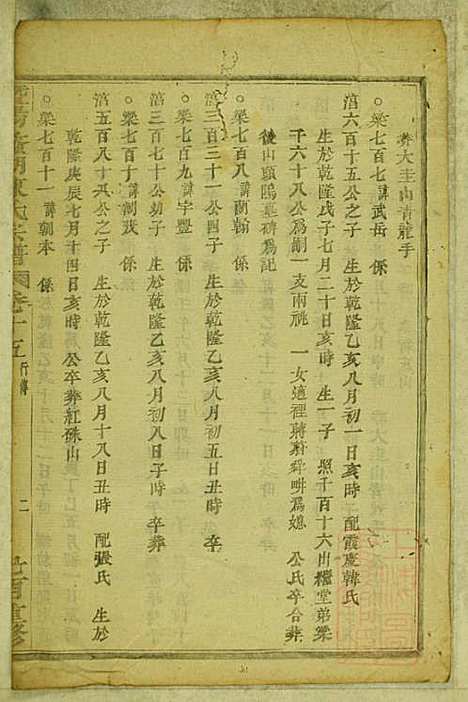 葬大圭山青龍手
○梁七百七 諱武岳 係
湻六百十五公之子 生於乾隆乙亥八月初一日亥時 配霞慶韓氏
生於乾隆戊子七月二十日亥時 生一子 照千百十六出繼堂弟梁
千六十八公爲嗣一支兩祧 一女適裡蔣 爲媳 公氏卒合葬
後山頭隖墓碑爲記
○梁七百八 諱蘭翰 係
湻三百二十一公四子 生於乾隆乙亥八月初五日亥時 卒
○梁七百九 諱字豐 係
湻三百七十公幼子 生於乾隆乙亥八月初八日子時 卒葬
○梁七百十 諱朝 係
湻五百八十公之子 生於乾隆乙亥八月十八日丑時 配張氏 生於
乾隆庚辰七月十四日亥時 公卒葬紅硃山
○梁七百十一 諱朝本 係
氏宗譜 卷十五 行傳 二 重修